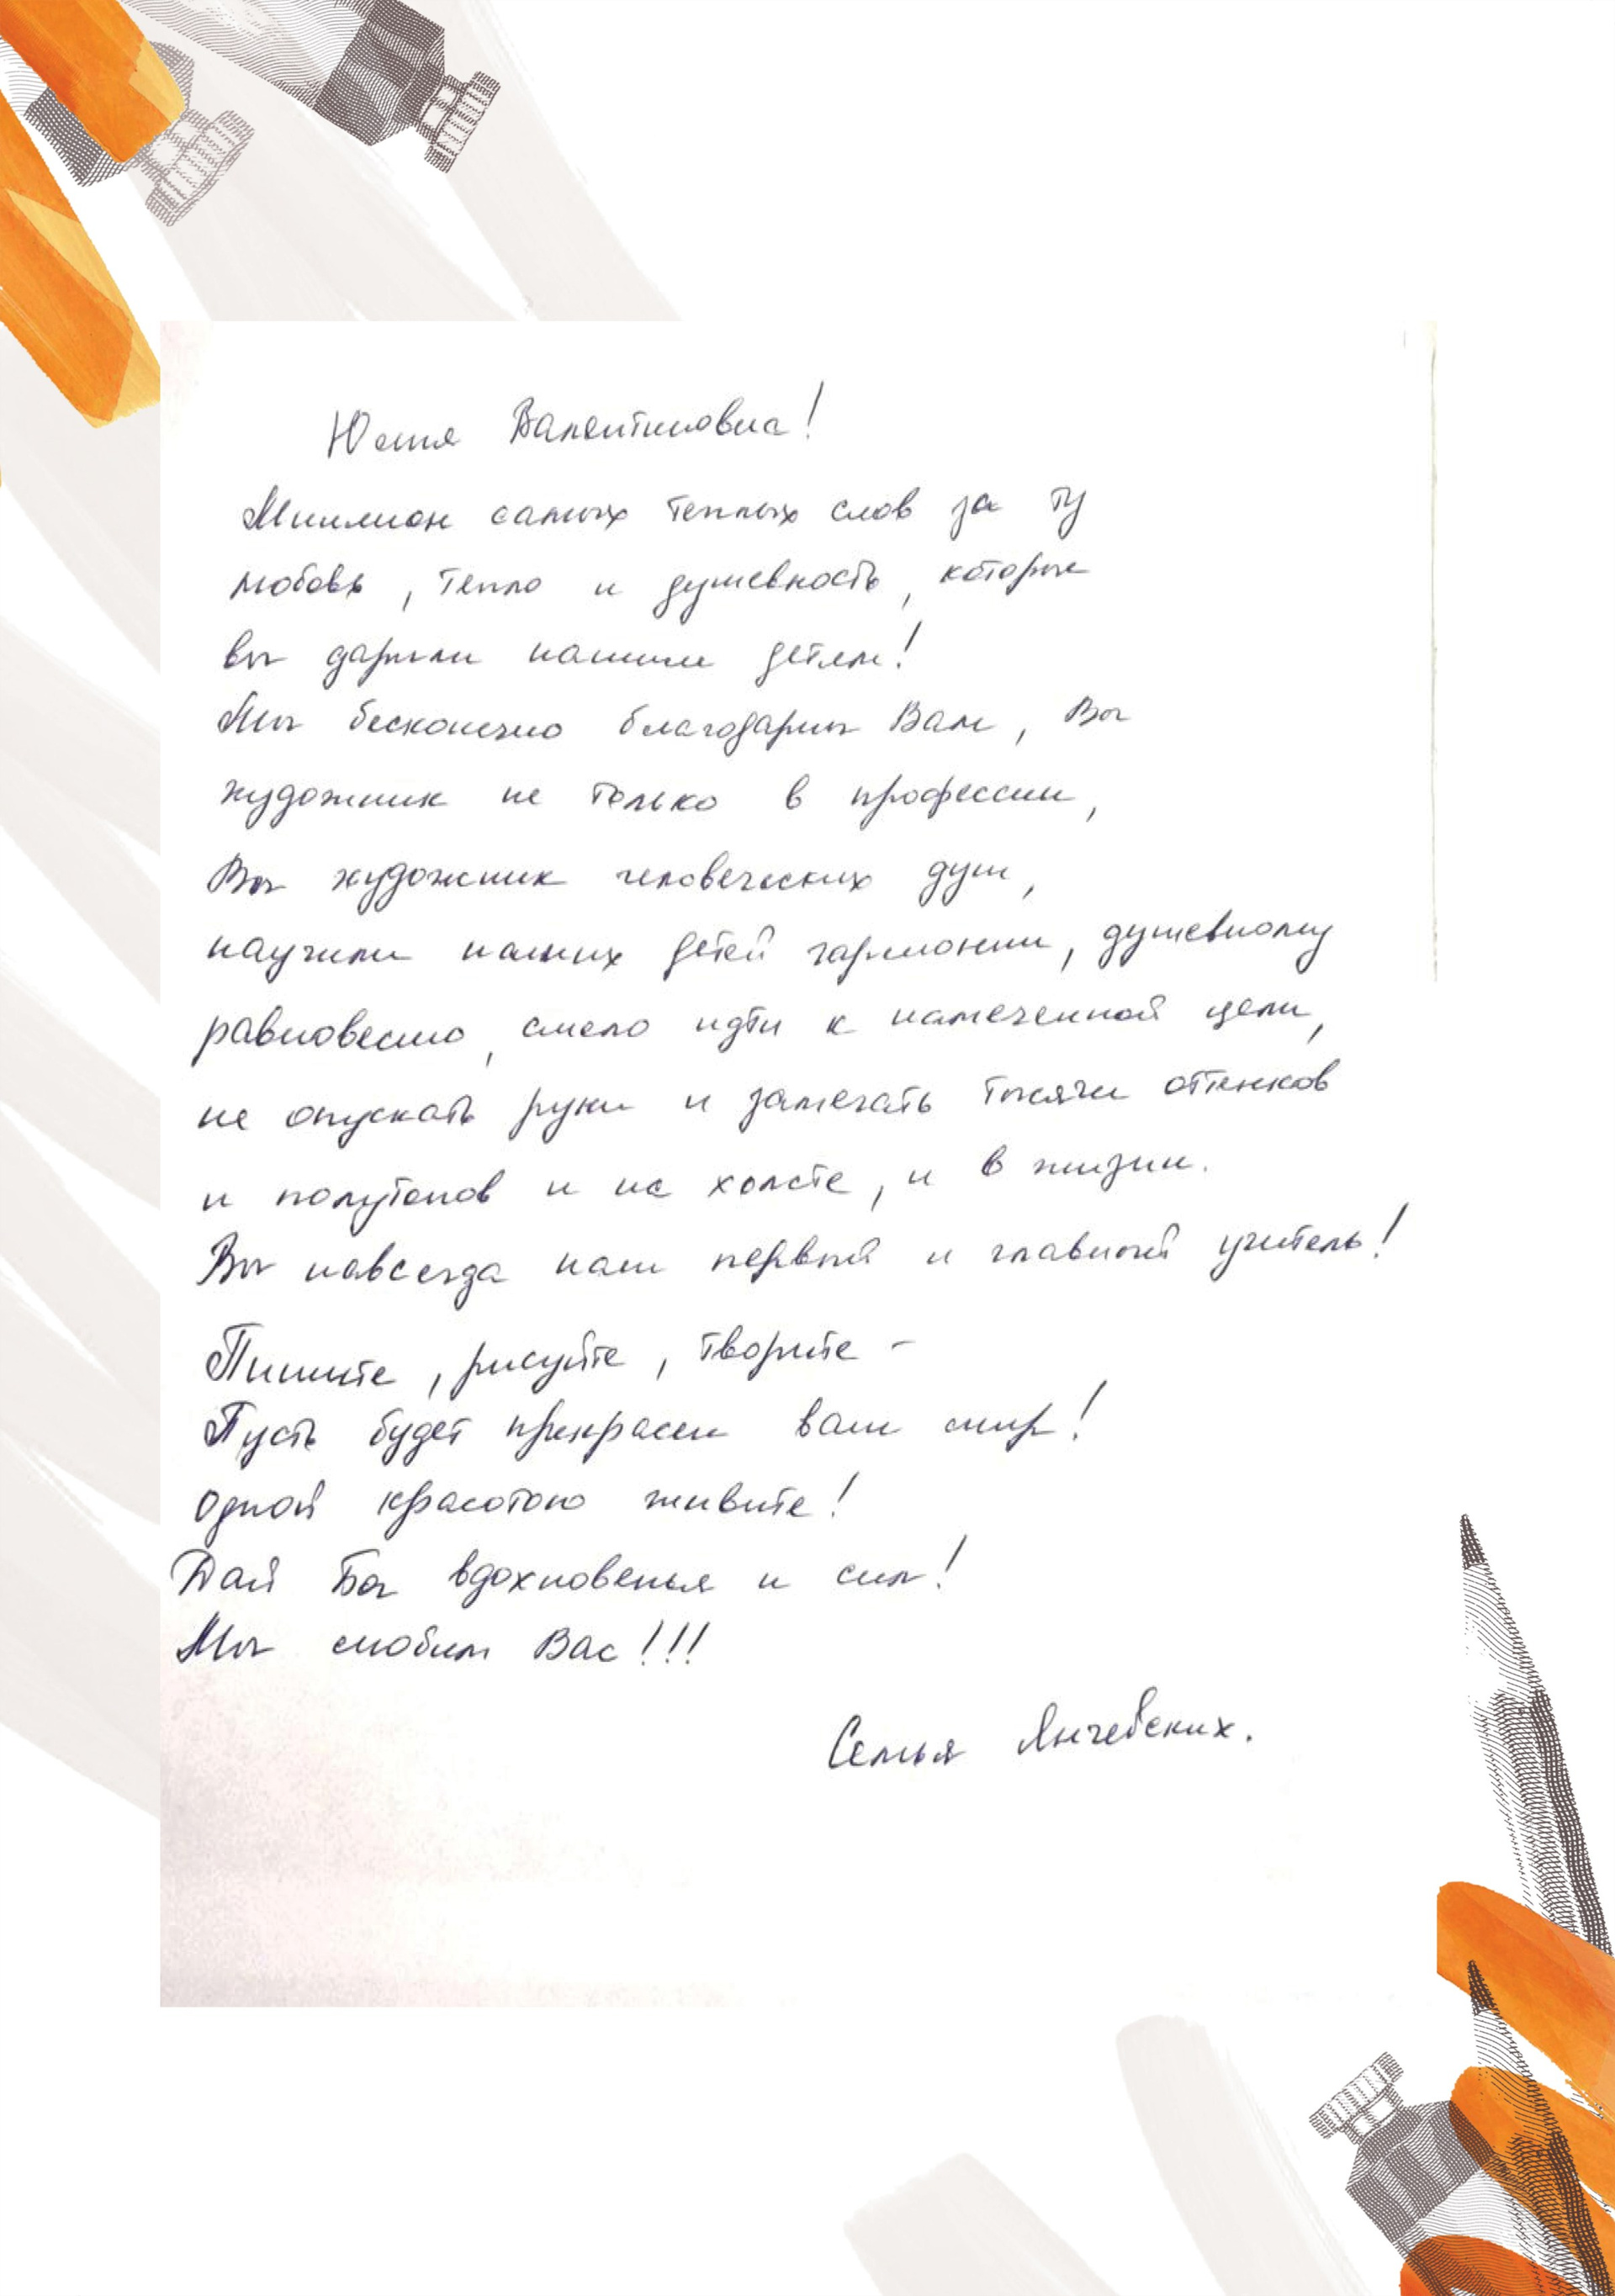 Юлия Валентиновна!
Миллион самых теплых слов за ту
любовь, тепло и душевность, которые
вы дарили нашим детям!
Мы бесконечно благодарны Вам, Вы
художник не только в профессии,
Вы художник человеческих душ,
научили наших детей гармонии, душевному
равновесию, смело идти к намеченной цели,
не опускать руки и замечать тысячи оттенков
и полутонов и на холсте, и в жизни.
Вы навсегда наш первый и главный учитель!
Пишите, рисуйте, творите –
Пусть будет прекрасен ваш мир!
Одной красотою живите!
Дай Бог вдохновенья и сил!
Мы любим Вас!!!
Семья Янчевских.